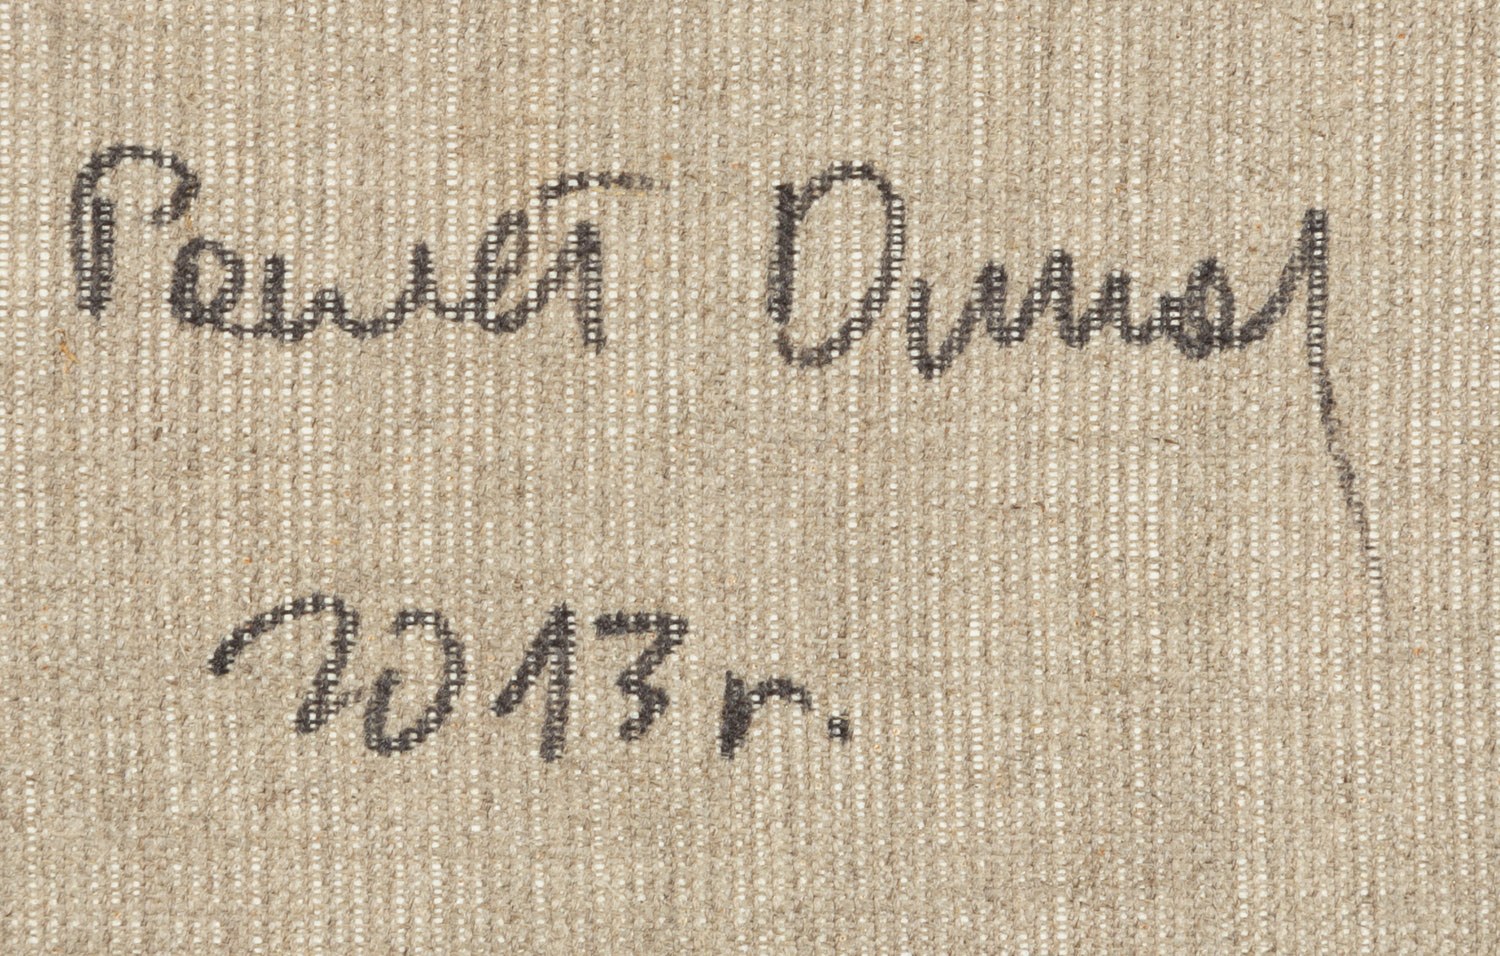 Paweł Dunaj
2013 r.